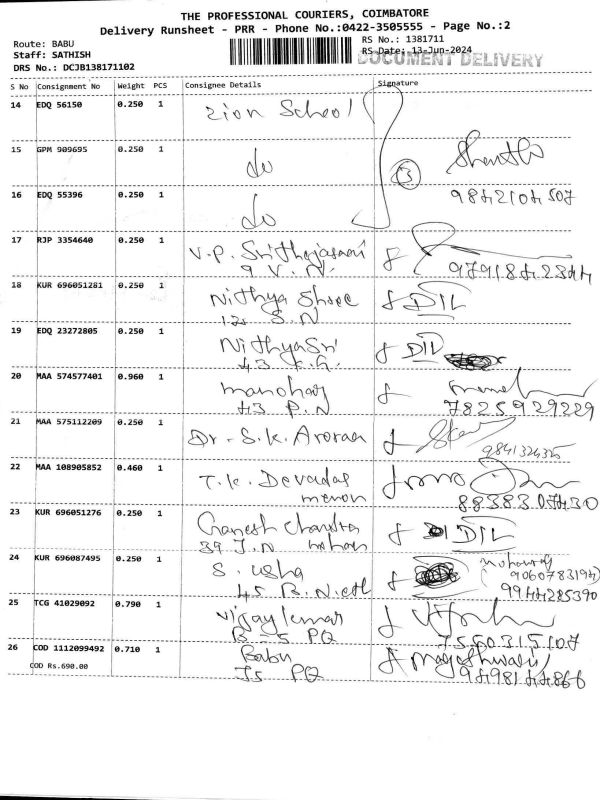 THE PROFESSIONAL COURIERS, COIMBATORE
Delivery Runsheet - PRR - Phone No.:0422-3505555 - Page No.:2
Route: BABU
Staff: SATHISH
DRS No.: DCJB138171102
RS No.: 1381711
RS Date: 13-Jun-2024
DOCUMENT DELIVERY
S No Consignment No Weight PCS Consignee Details Signature
14 EDQ 56150 0.250 1 Zion School
15 GPM 909695 0.250 1 do
3
16 EDQ 55396 0.250 1 do
17 RJP 3354640 0.250 1 V.P.
9 V.N.
18 KUR 696051281 0.250 1 Nithya Shree DIL
12 S.N
19 EDQ 23272805 0.250 1 Nithya Sri DIL
43
20 MAA 574577401 0.960 1 manohar
43 P.N 7825929229
21 MAA 575112209 0.250 1 Dr. S.K.
22 MAA 108905852 0.460 1 T.K. Devadas
menon 8838307430
23 KUR 696051276 0.250 1 Ganesh Chandra DIL
39 J.N
24 KUR 696087495 0.250 1 S. usha
45 B.N 9944285390
25 TCG 41029092 0.790 1 Vijay kumar
B-5 PQ 7550315107
26 COD 1112099492 0.710 1 Babu
COD Rs.690.00 J5 PQ